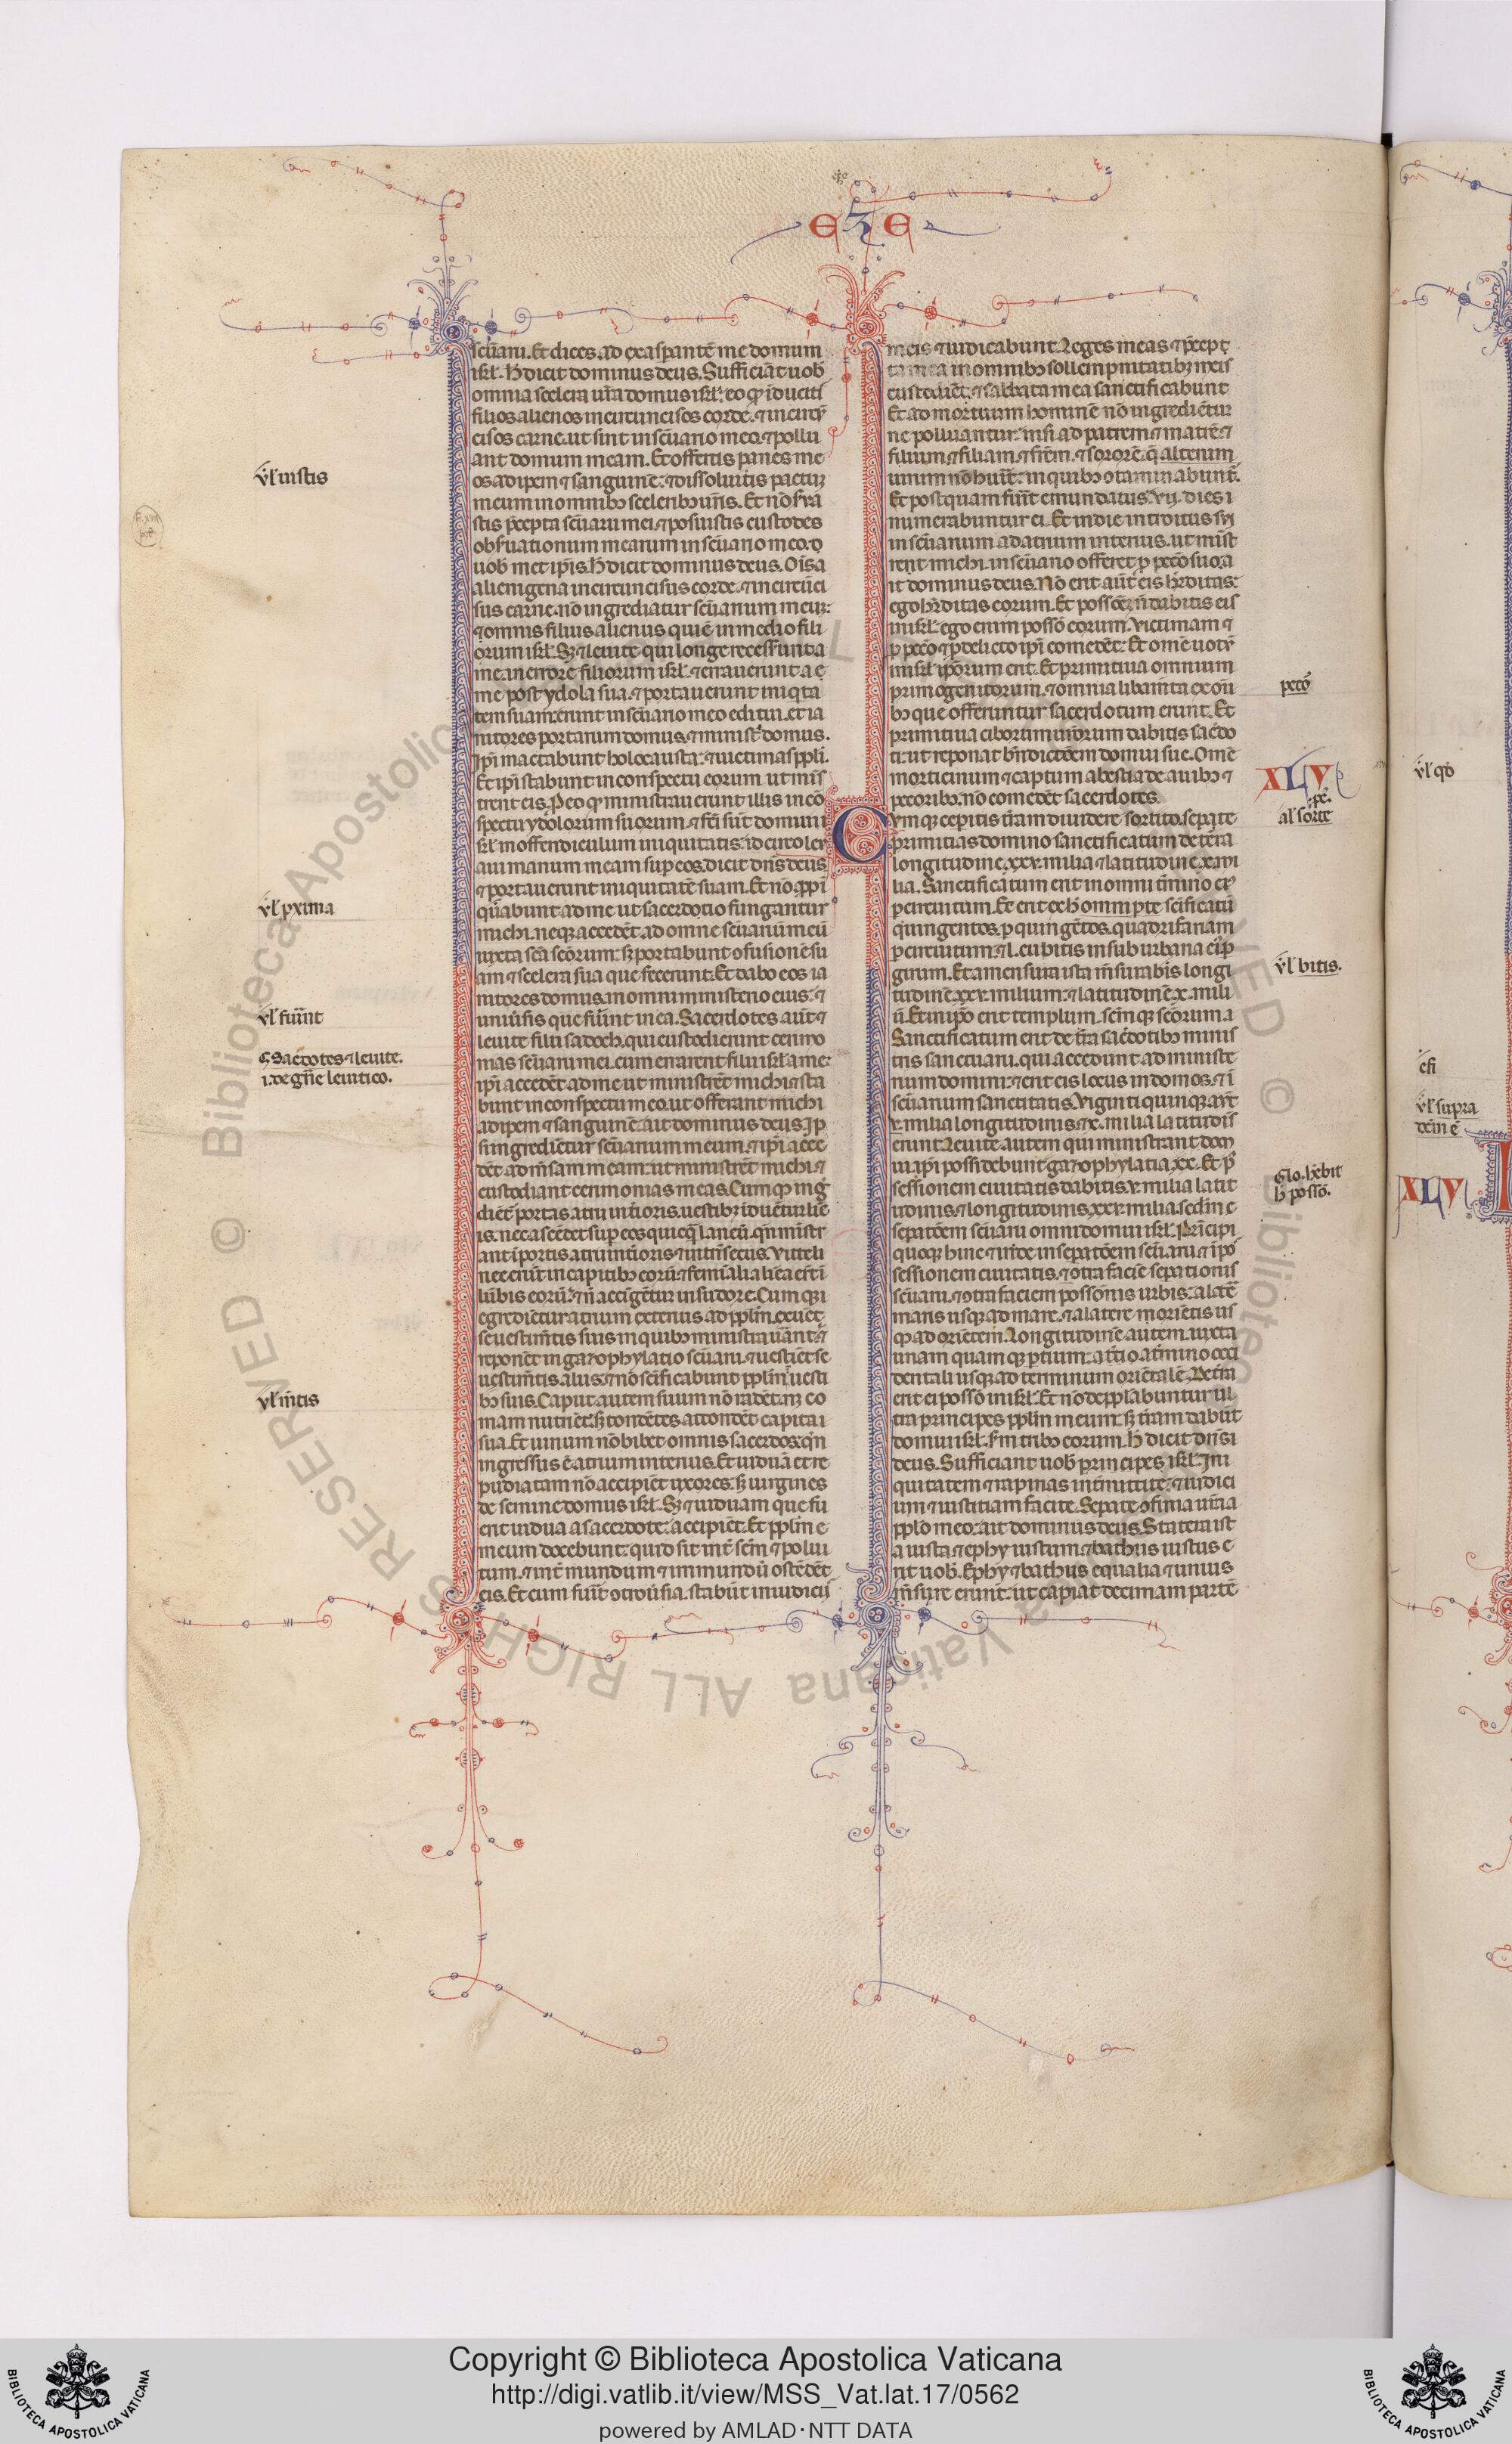 EZE
scuarii. Et dices ad exasperantē me domum
isrl̄. H̄ dicit dominus deus. Sufficiāt uob̄
omnia scelera ur̄a domus isrl̄: eo qḍ īducitis
filios alienos incircuncisos corde. ⁊ incircū
cisos carne. ut sint in sc̄uario meo. ⁊ pollu
ant domum meam. Et offertis panes me
os adipem ⁊ sanguinē: ⁊ dissoluitis pactuꝫ
meum in omnibꝫ sceleribꝫ ur̄is. Et nō ẜua
stis p̄cepta sc̄uarii mei. ⁊ posuistis custodes
obẜuationum mearum in sc̄uario meo.
uob̄ met ip̄is. H̄ dicit dominus deus. Oīs
alienigena incircuncisus corde. ⁊ incircūci
sus carne. nō ingrediatur sc̄uarium meuꝫ:
⁊ omnis filius alienus qui ē in medio fili
orum isrl̄. Sꝫ ⁊ leuite qui longe recesserunt a
me. in errore filiorum isrl̄. ⁊ errauerunt a
me post ydola sua. ⁊ portauerunt iniqͥta
tem suam: erunt in sc̄uario meo editui. et ia
nitores portarum domus. ⁊ ministͥ domus.
Ip̄i mactabunt holocausta: ⁊ uictimas pp̄li.
Et ip̄i stabunt in conspectu eorum ut minis
trent eis. P eo qḍ ministrauerunt illis in cō
spectu ydolorum suorum. ⁊ fc̄i sūt domui
isrl̄ in offendiculum iniquitatis: id circo le
aui manum meam sup̱ eos. dicit dn̄s deus
⁊ portauerunt iniquitatē suam. Et nō app̱ī
qͣbunt ad me ut sacerdotio fungantur
michi. neqꝫ accedēt ad omne sc̄uariū meū
iuxta sc̄a sc̄orum: sꝫ portabunt ꝯfusionē su
am ⁊ scelera sua que fecerunt. Et dabo eos ia
nitores domus. in omni ministerio eius: ⁊
uniūsis que fiūnt in ea. Sacerdotes aūt ⁊
leuite filii sadoch. qui custodierunt cerimo
nias sc̄uarii mei. cum errarent filii isrl̄ a me:
ip̄i accedēt ad me ut ministrēt michi. ⁊ sta
bunt in conspectu meo. ut offerant michi
adipem ⁊ sanguinē: ait dominus deus. Ip̄
i ingrediētur sc̄uarium meum. ⁊ ip̄i acce
dēt ad m̄sam meam: ut ministrēt michi. ⁊
custodiant cerimonias meas. Cumqꝫ ingͬ
diēt portas atrii int̄ioris. uestibꝫ īduētur līe
is. nec ascēdet sup̱ eos quicqͣ laneū. qn̄ ministr
ant ī portis atrii int̄ioris ⁊ intͥnsecus. Vitte li
nee erūt in capitibꝫ eorū. ⁊ femīalia līea er̄t ī
lūbis eorū. ⁊ n̄ accīgētur in sudore. Cumqꝫ
egrediētur atrium exterius ad pp̄lm. exuēt
se uestim̄tis suis in quibꝫ ministrauāt. ⁊
reponēt in gaꝫophylatio sc̄uarii. ⁊ uestiēt se
uestim̄tis aliis. ⁊ nō sc̄ificabunt pp̄lm ī uesti
bꝫ suis. Caput autem suum nō radēt. neqꝫ co
mam nutriēt: sꝫ tondētes attondēt capita
sua. Et uinum nō bibet omnis sacerdos: qn̄
ingressus ē atrium interius. Et uiduā et re
pudiatam nō accipiēt uxores. sꝫ uirgines
de semine domus isrl̄. Sꝫ ⁊ uiduam que fu
erit uidua a sacerdote: accipiēt. Et pp̄lm
meum docebunt: quid sit int̄ sc̄m ⁊ pollu
tum. ⁊ int̄ mundum ⁊ immundū ostēdēt
eis. Et cum fuīt ꝯtrouͥsia. stabūt in iudicij
meis ⁊ iudicabunt. Leges meas ⁊ p̄cep
ta mea in omnibꝫ sollempnitatibꝫ meis
custodiēt. ⁊ sabbata mea sanctificabunt
Et ad mortuum hominē nō ingrediētur
ne polluantur: nisi ad patrem ⁊ matrē ⁊
filium. ⁊ filiam. ⁊ fr̄em. ⁊ sororē. q̄ alterum
uirum nō huīt: in quibꝫ ꝯtaminabunt̄.
Et postquam fuīt emundatus: vij. dies
numerabuntur ei. Et in die introitus sui
in sc̄uarium ad atrium interius. ut minist
rent michi in sc̄uario offeret p̱ pecc̄o suo: a
it dominus deus. Nō erit aūt eis h̄reditas:
ego h̄reditas eorum. Et possōꝫ n̄ dabitis eis
in isrl̄: ego enim possō eorum. Victimam ⁊
p̱ pecc̄o ⁊ p̱ delicto ip̄i comedēt. Et omē uotū
in isrl̄ ip̄orum erit. Et primitiua omnium
primogenitorum. ⁊ omnia libam̄ta ex oīi
bꝫ que offeruntur sacerdotum erunt. Et
primitiua ciborum ur̄orum dabitis sac̄do
ti: ut reponat bn̄dictōem domui sue. Omē
morticinum ⁊ captum a bestia de auibꝫ ⁊
pecoribꝫ. nō comedēt sacerdotes.
Cumqꝫ cep̱itis tr̄am diuidere sortito. sep̱ate
primitias domino sanctificatum de terra
longitudinē. xxv. milia. ⁊ latitudinē. x. mi
lia. Sanctificatum erit in omni tm̄ino eiꝰ
p̱ circuitum. Et erit ex h̄ omni p̱te sc̄ificatū
quingentos. p̱ quingētos. quadrifariam
p̱ circuitum. ⁊ l. cubitis in suburbana eiꝰ p̱
girum. Et a mensura ista m̄surabis longi
tudinē xxv. milium: ⁊ latitudinē x. mili
ū. Et in ip̄o erit templum. sc̄mqꝫ sc̄orum
Sanctificatum erit de tr̄a sac̄dotibꝫ minis
tris sanctuarii. qui accedunt ad ministe
rium domini: ⁊ erit eis locus in domos. ⁊ ī
sc̄uarium sanctitatis. Viginti quinqꝫ aūt
milia longitudinis. ⁊ x. milia latitudis
erunt. Leuite autem qui ministrant dom
ui ip̄i possidebunt gaꝫophylatia. xx. Et pos
sessionem ciuitatis dabitis. v. milia latit
udinis. ⁊ longitudinis. xxv. milia. sc̄dm
sep̱atōem sc̄uarii omni domui isrl̄. Principi
quoqꝫ hinc ⁊ inde in sep̱atōem sc̄uarii. ⁊ ī pos
sessionem ciuitatis. ⁊ ꝯtra faciē sep̱ationis
sc̄uarii. ⁊ ꝯtra faciem possōnis urbis: a latē
maris usqꝫ ad mare. ⁊ a latere orientis us
qꝫ ad oriētem. Longitudinē autem. iuxta
unam quamqꝫ p̱tium: a tm̄ino occi
dentali usqꝫ ad terminum oriētalē. De tr̄a
erit ei possō in isrl̄. Et nō dep̱p̄labuntur ul
tra principes pp̄lm meum: sꝫ tr̄am dabūt
domui isrl̄. sm̄ tribꝫ eorum. H̄ dicit dn̄s
deus. Sufficiant uob̄ principes isrl̄. Ini
quitatem ⁊ rapinas int̄mittite: ⁊ iudici
um ⁊ iustitiam facite. Sep̱ate ꝯfinia ur̄a a
pp̄lo meo: ait dominus deus. Statera iust
a iusta ⁊ ephy iustum ⁊ bathus iustus e
rit uob̄. Ephy ⁊ bathus equalia ⁊ unius
m̄sure erunt: ut capiat decimam partē
ul̄ uistis
ul̄ p̱xima
ul̄ fuīnt
Sacdotes ⁊ leuite.
i. de gn̄e leuitico.
ul̄ īn̄tis
pecc̄o
XLV
al̄ sorte
ul̄ bitis.
Glo. h̄ebit
h̄ possō.
ul̄ qḍ
ul̄ supra
XLVI
Copyright © Biblioteca Apostolica Vaticana
http://digi.vatlib.it/view/MSS_Vat.lat.17/0562
powered by AMLAD·NTT DATA
BIBLIOTECA APOSTOLICA VATICANA
BIBLIOTECA APOSTOLICA VATICANA
© Biblioteca Apostolica Vaticana ALL RIGHTS RESERVED